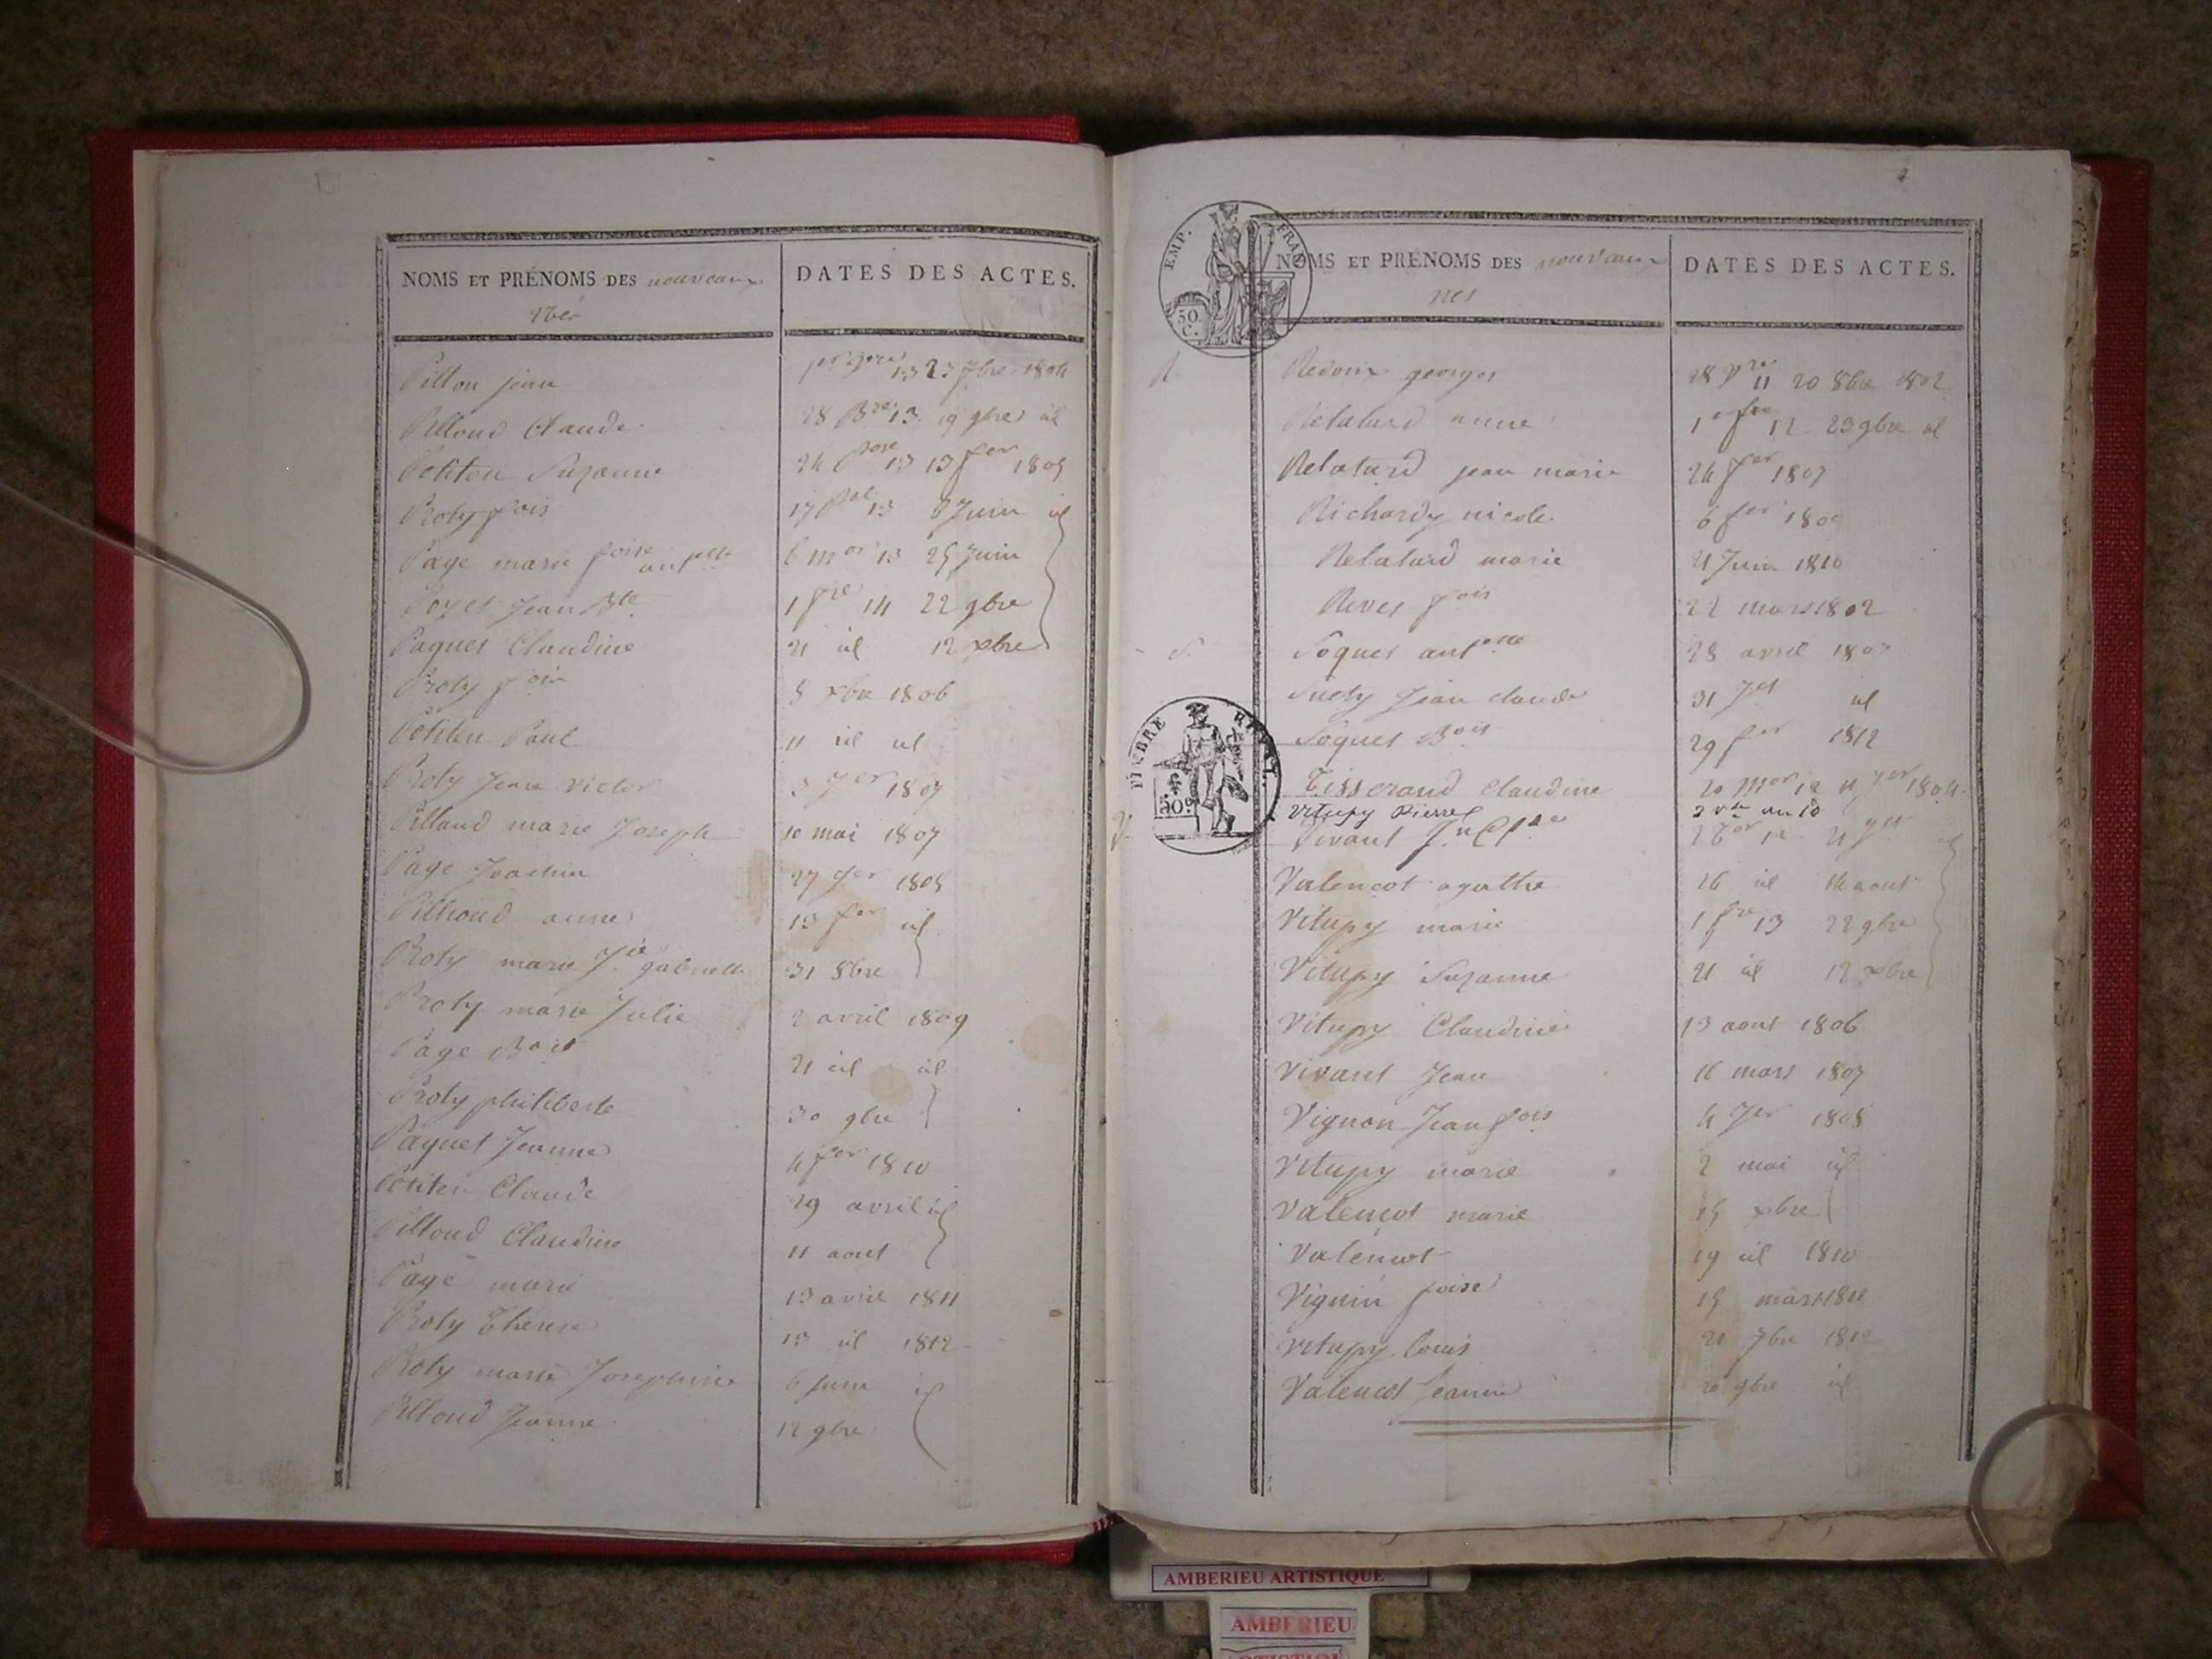 NOMS ET PRÉNOMS DES nouveaux
Nés
DATES DES ACTES.
Pillon jean 13 23 7bre 1804
Pilloud Claude 28 Bre 13 19 gbre id
Petiten Suzanne 24 13 13 fer 1805
Proty fois 17 13 8 Juin id
Page marie foise antte 6 mor 13 25 Juin
Poyet Jean Bte 1 fre 14 22 gbre
Paquet Claudine 21 id 12 xbre
Proty fois 8 xbre 1806
Petiten Paul 11 id id
Proty Jean Victor 3 Jer 1807
Pilloud marie Joseph 10 mai 1807
Page Joachim 27 Jer 1808
Pilloud anne 13 fer id
Proty marie Jie gabrielle 31 8bre
Proty marie Julie 2 avril 1809
Page Boit 21 id id
Proty philiberte 30 gbre
Paquet Jeanne 4 fer 1810
Petiten Claude 29 avril id
Pilloud Claudine 11 aout
Page marie 13 avril 1811
Proty Therese 13 id 1812
Proty marie Josephine 6 Juin id
Pilloud Jeanne 12 gbre
EMP. FRAN
50 C.
NOMS ET PRÉNOMS DES nouveaux
nes
DATES DES ACTES.
R. Redoux georges 28 Vre 11 20 8bre 1802
Relatard anne 1er fre 12 23 gbre id
Relatard jean marie 24 fer 1807
Richardy nicole 6 fer
Relatard marie 21 Juin 1810
Revet fois 22 mars 1802
S. Soquet antte 28 avril 1807
Suchy Jean claude 31 Jet id
Soquet Boit 29 fer 1812
TIMBRE
50c
Tisserand Claudine 20 12 11 Jer 1804
Vitupy Pierre 2 an 10
V. Vivant 12 21
Valencot agathe 26 id 14 aout
Vitupy marie 1 fre 13 22 gbre
Vitupy Suzanne 21 id 12 xbre
Vitupy Claudine 13 aout 1806
Vivant Jean 16 mars 1807
Vignon Jean fois 4 Jer 1808
Vitupy marie 2 mai id
Valencot marie 15 xbre
Valencot 19 id 1810
Viguin foise 15 mars
Vitupy louis 21 7bre 1812
Valencot Jeanne 20 gbre id
AMBERIEU ARTISTIQUE
AMBERIEU